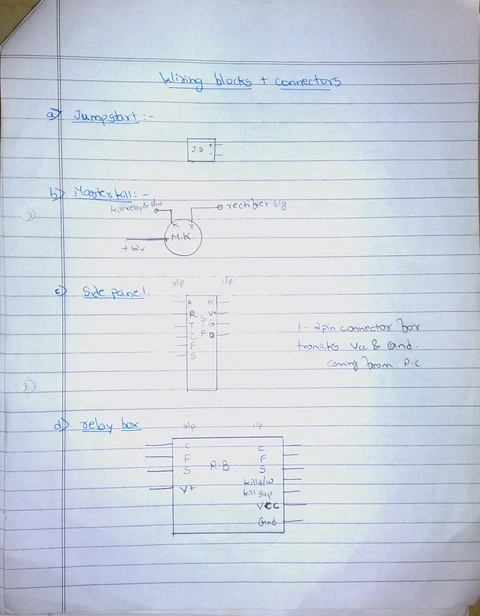 Wiring blocks + connectors
a) Jumpstart:-
J.S +
-
b) Masterkill:-
rectifier sig
K r
M.K
+12v
c) Side panel.
o/p i/p
K K
R V+
T S G
C P
F
S
1 - 2pin connector for
tronicks Vcc & Gnd.
coming from P.C
d) relay box
o/p i/p
C C
F F
S R.B S
kill s/w
V+ kill sup
VCC
Gnd